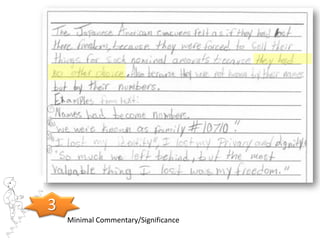 The Japanese American evacuees felt as if they had lost
there freedom, because they were forced to sell their
things for such nominal amounts because they had
no other choice. Also because they were not known by their names
but by their numbers.
Examples
Names had become numbers.
"We were known as family #10710".
"I lost my identity" I lost my Privacy and dignity
"So much we left behind, but the most
valuable thing I lost was my freedom."
3
Minimal Commentary/Significance